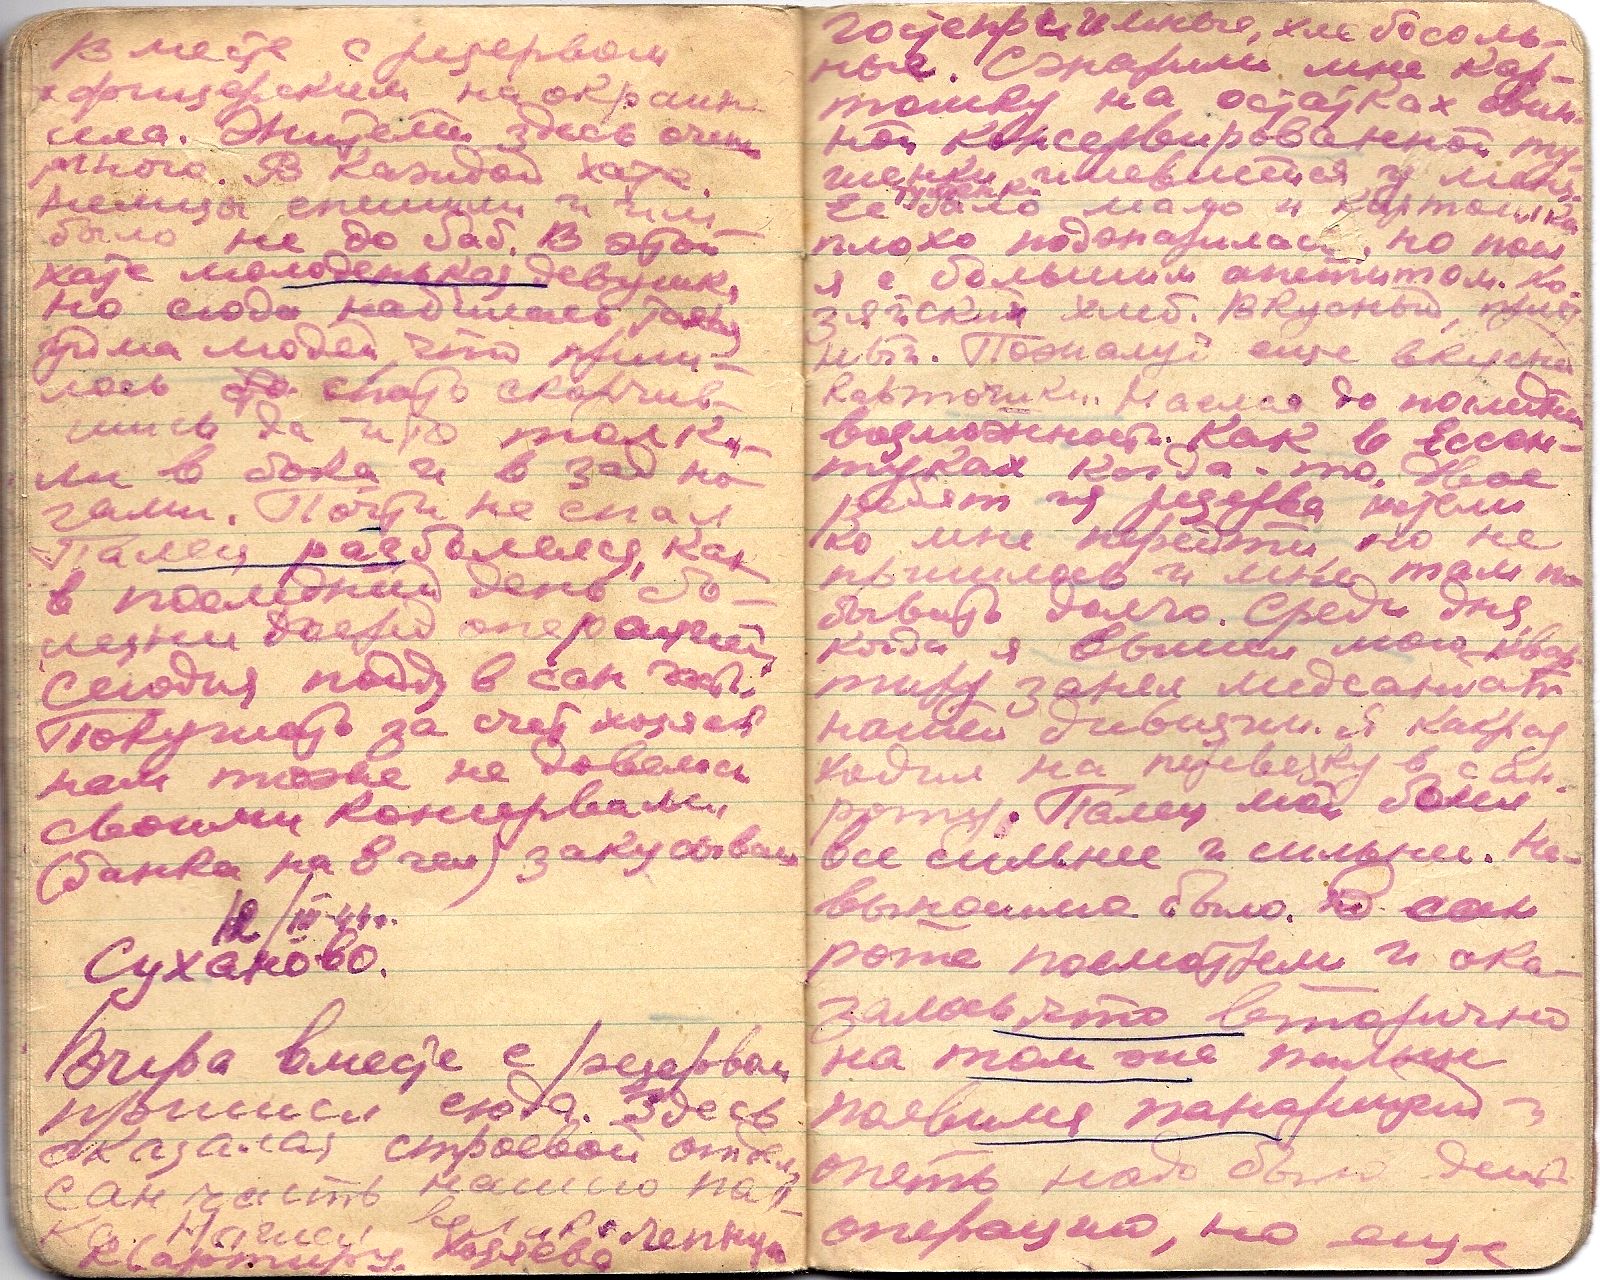 Вместе с резервом
офицерским на окраине
села. Жителей здесь очень
много. В каждой хате.
Немцы спешили и им
было не до баб. В этой
хате молоденькая девушка,
но сюда набилась такая
тьма людей, что приш-
лось спать скорчив-
шись да и то толка-
ли в бока и в зад но-
гами. Почти не спал
Палец разболелся, как
в последний день бо-
лезни перед операцией
Сегодня пойду в сан часть
Покушать за счет хозяев
нам тоже не довелось
своими консервами
(банка на 8 чел) закусывали
12/III-44г.
Суханово.
Вчера вместе с резервом
пришел сюда. Здесь
оказался строевой отдел,
сан часть нашего пол-
ка. Нашел великолепную
квартиру. Хозяева
гостеприимные, хлебосоль-
ные. Сжарили мне кар-
тошку на остатках свин-
ной консервированной ту-
шенки имевшейся у меня.
Ее тушенки было мало и картошка
плохо поджарилась, но поел
я с большим аппетитом. Хо-
зяйский хлеб. Вкусный,
Пожалуй еще вкусней
картошки. Наелся до последней
возможности. Как в Ессен-
туках когда-то. Двое
ребят из резерва хотели
ко мне перейти, но не
пришлось и мне там по-
бывать долго. Среди дня,
когда я вышел мою квар-
тиру занял медсанбат
нашей дивизии. Я как раз
ходил на перевязку в сан-
роту. Палец мой болел
все сильнее и сильнее. Не-
выносимо было. В сан
роте посмотрели и ока-
залось что вторично
на том же пальце
появился панариций -
опять надо было делать
операцию, но еще